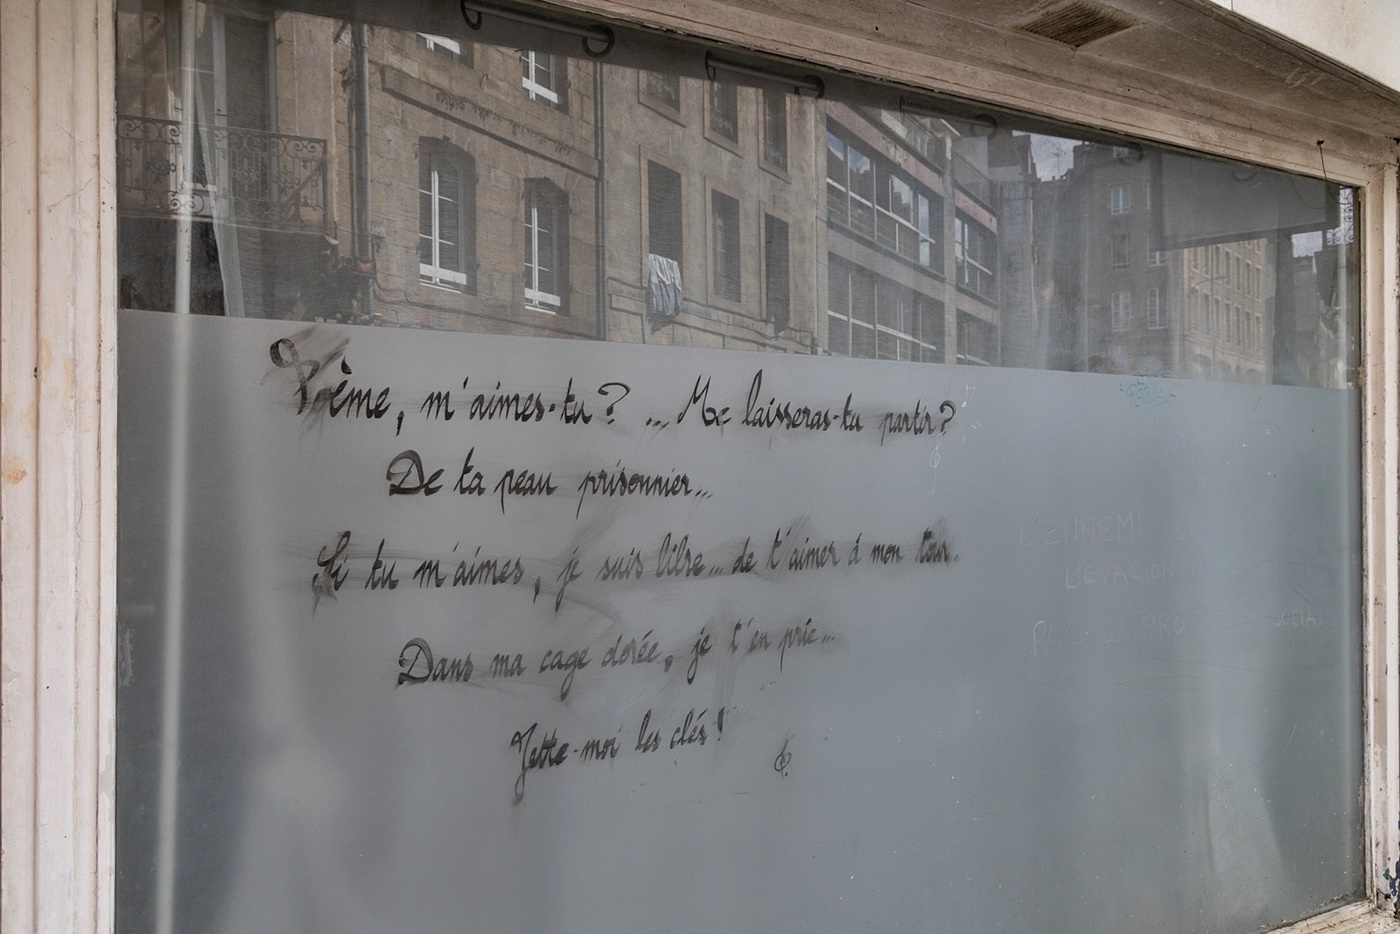 Poème, m'aimes-tu ? ... Me laisseras-tu partir ?
De ta peau prisonnier...
Si tu m'aimes, je suis libre... de t'aimer à mon tour.
Dans ma cage dorée, je t'en prie...
Jette-moi les clés !
L'ENNEMI
L'EVASION